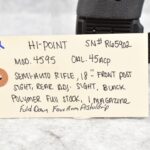 HI-POINT SN# R65902
MOD. 4595 CAL. 45ACP
SEMI-AUTO RIFLE, 18" FRONT POST
SIGHT, REAR ADJ. SIGHT, BLACK
POLYMER FULL STOCK, 1 MAGAZINE
Fold Down Four Arm Pistol Grip